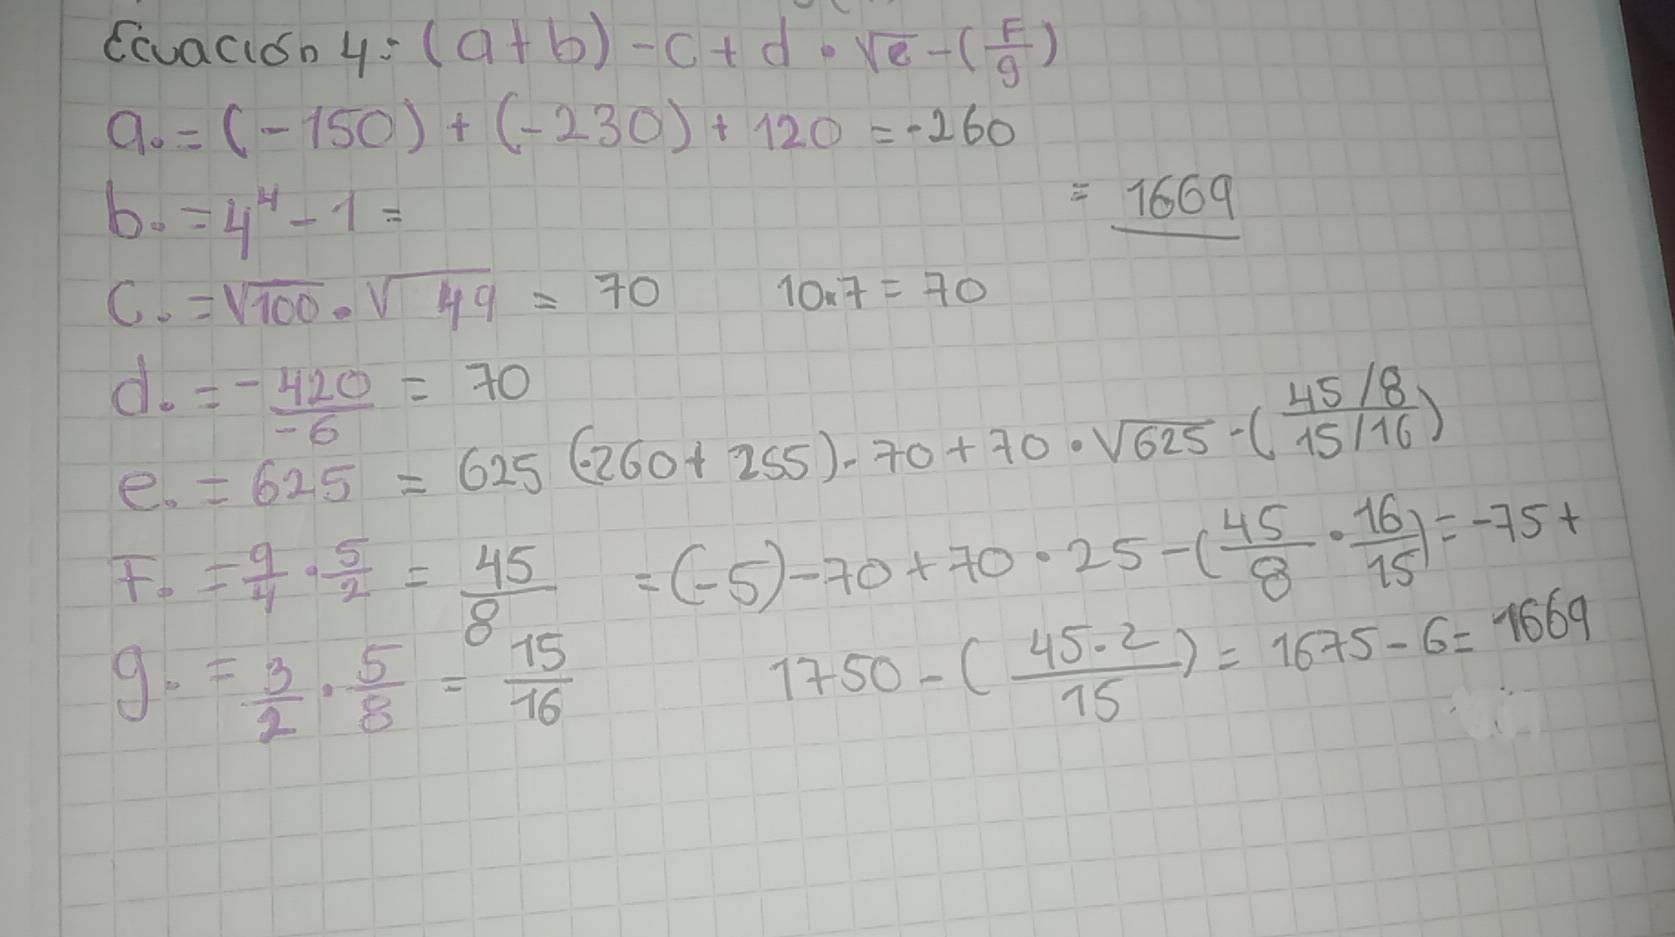 Ecuación 4: (a+b) - c + d · √e - (F/g)
a. = (-150) + (-230) + 120 = -260
b. = 4^4 - 1 =
= 1669
c. = √100 · √49 = 70 10·7 = 70
d. = -420/-6 = 70
e. = 625 = 625 (-260 + 255) - 70 + 70 · √625 - (45/8 / 15/16)
F. = 9/4 · 5/2 = 45/8 = (-5) - 70 + 70 · 25 - (45/8 · 16/15) = -75 +
g. = 3/2 · 5/8 = 15/16 1750 - (45·2/15) = 1675 - 6 = 1669